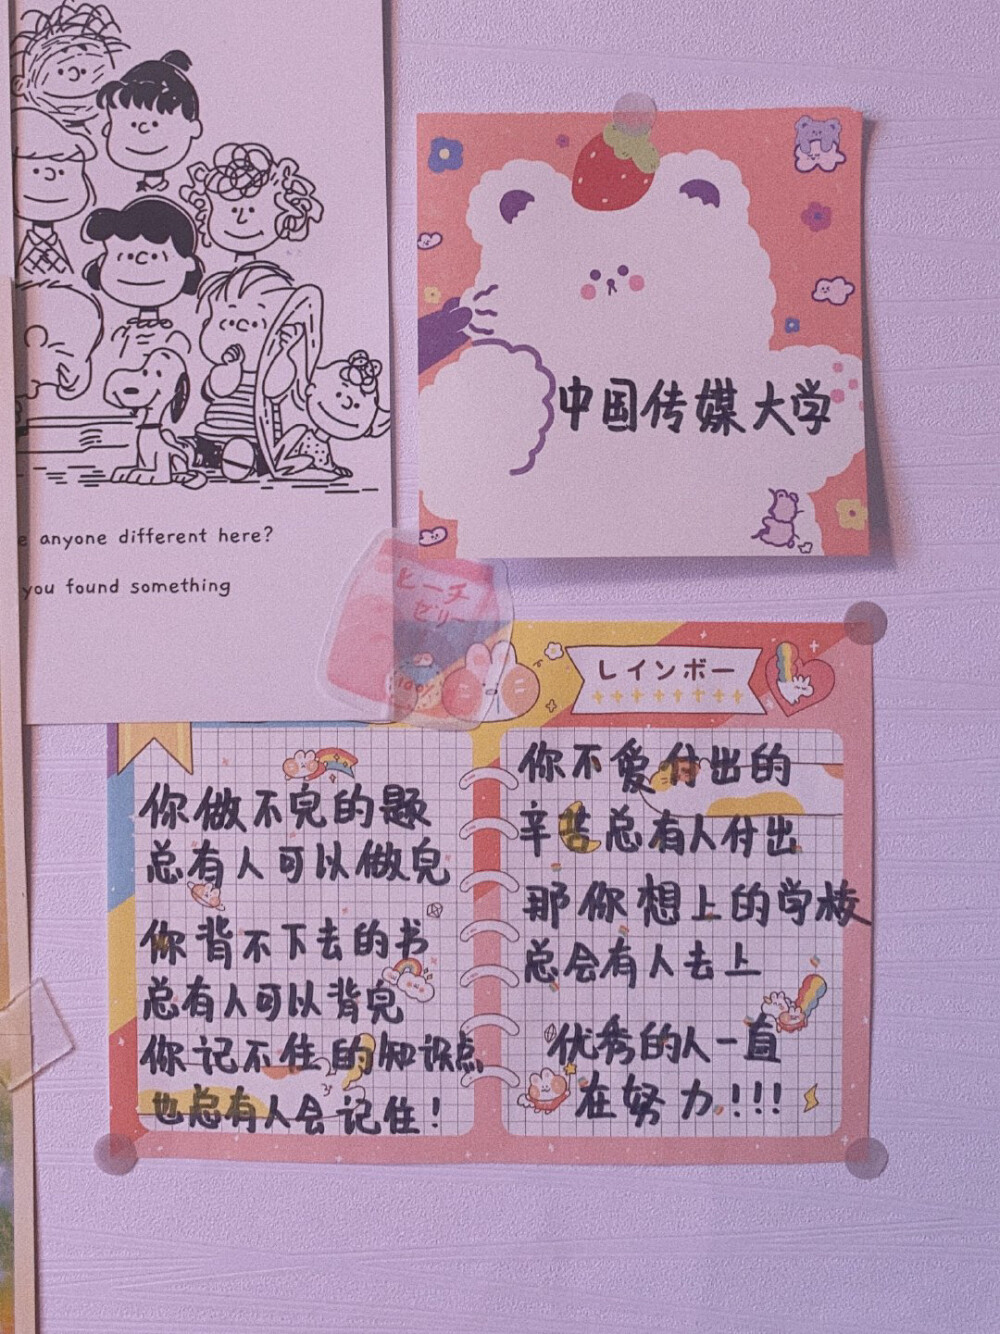 anyone different here?
you found something
中国传媒大学
ピーチ
ゼリー
100%
レインボー
你做不完的题
总有人可以做完
你背不下去的书
总有人可以背完
你记不住的知识点
也总有人会记住!
你不爱付出的
辛苦总有人付出
那你想上的学校
总会有人去上
优秀的人一直
在努力!!!